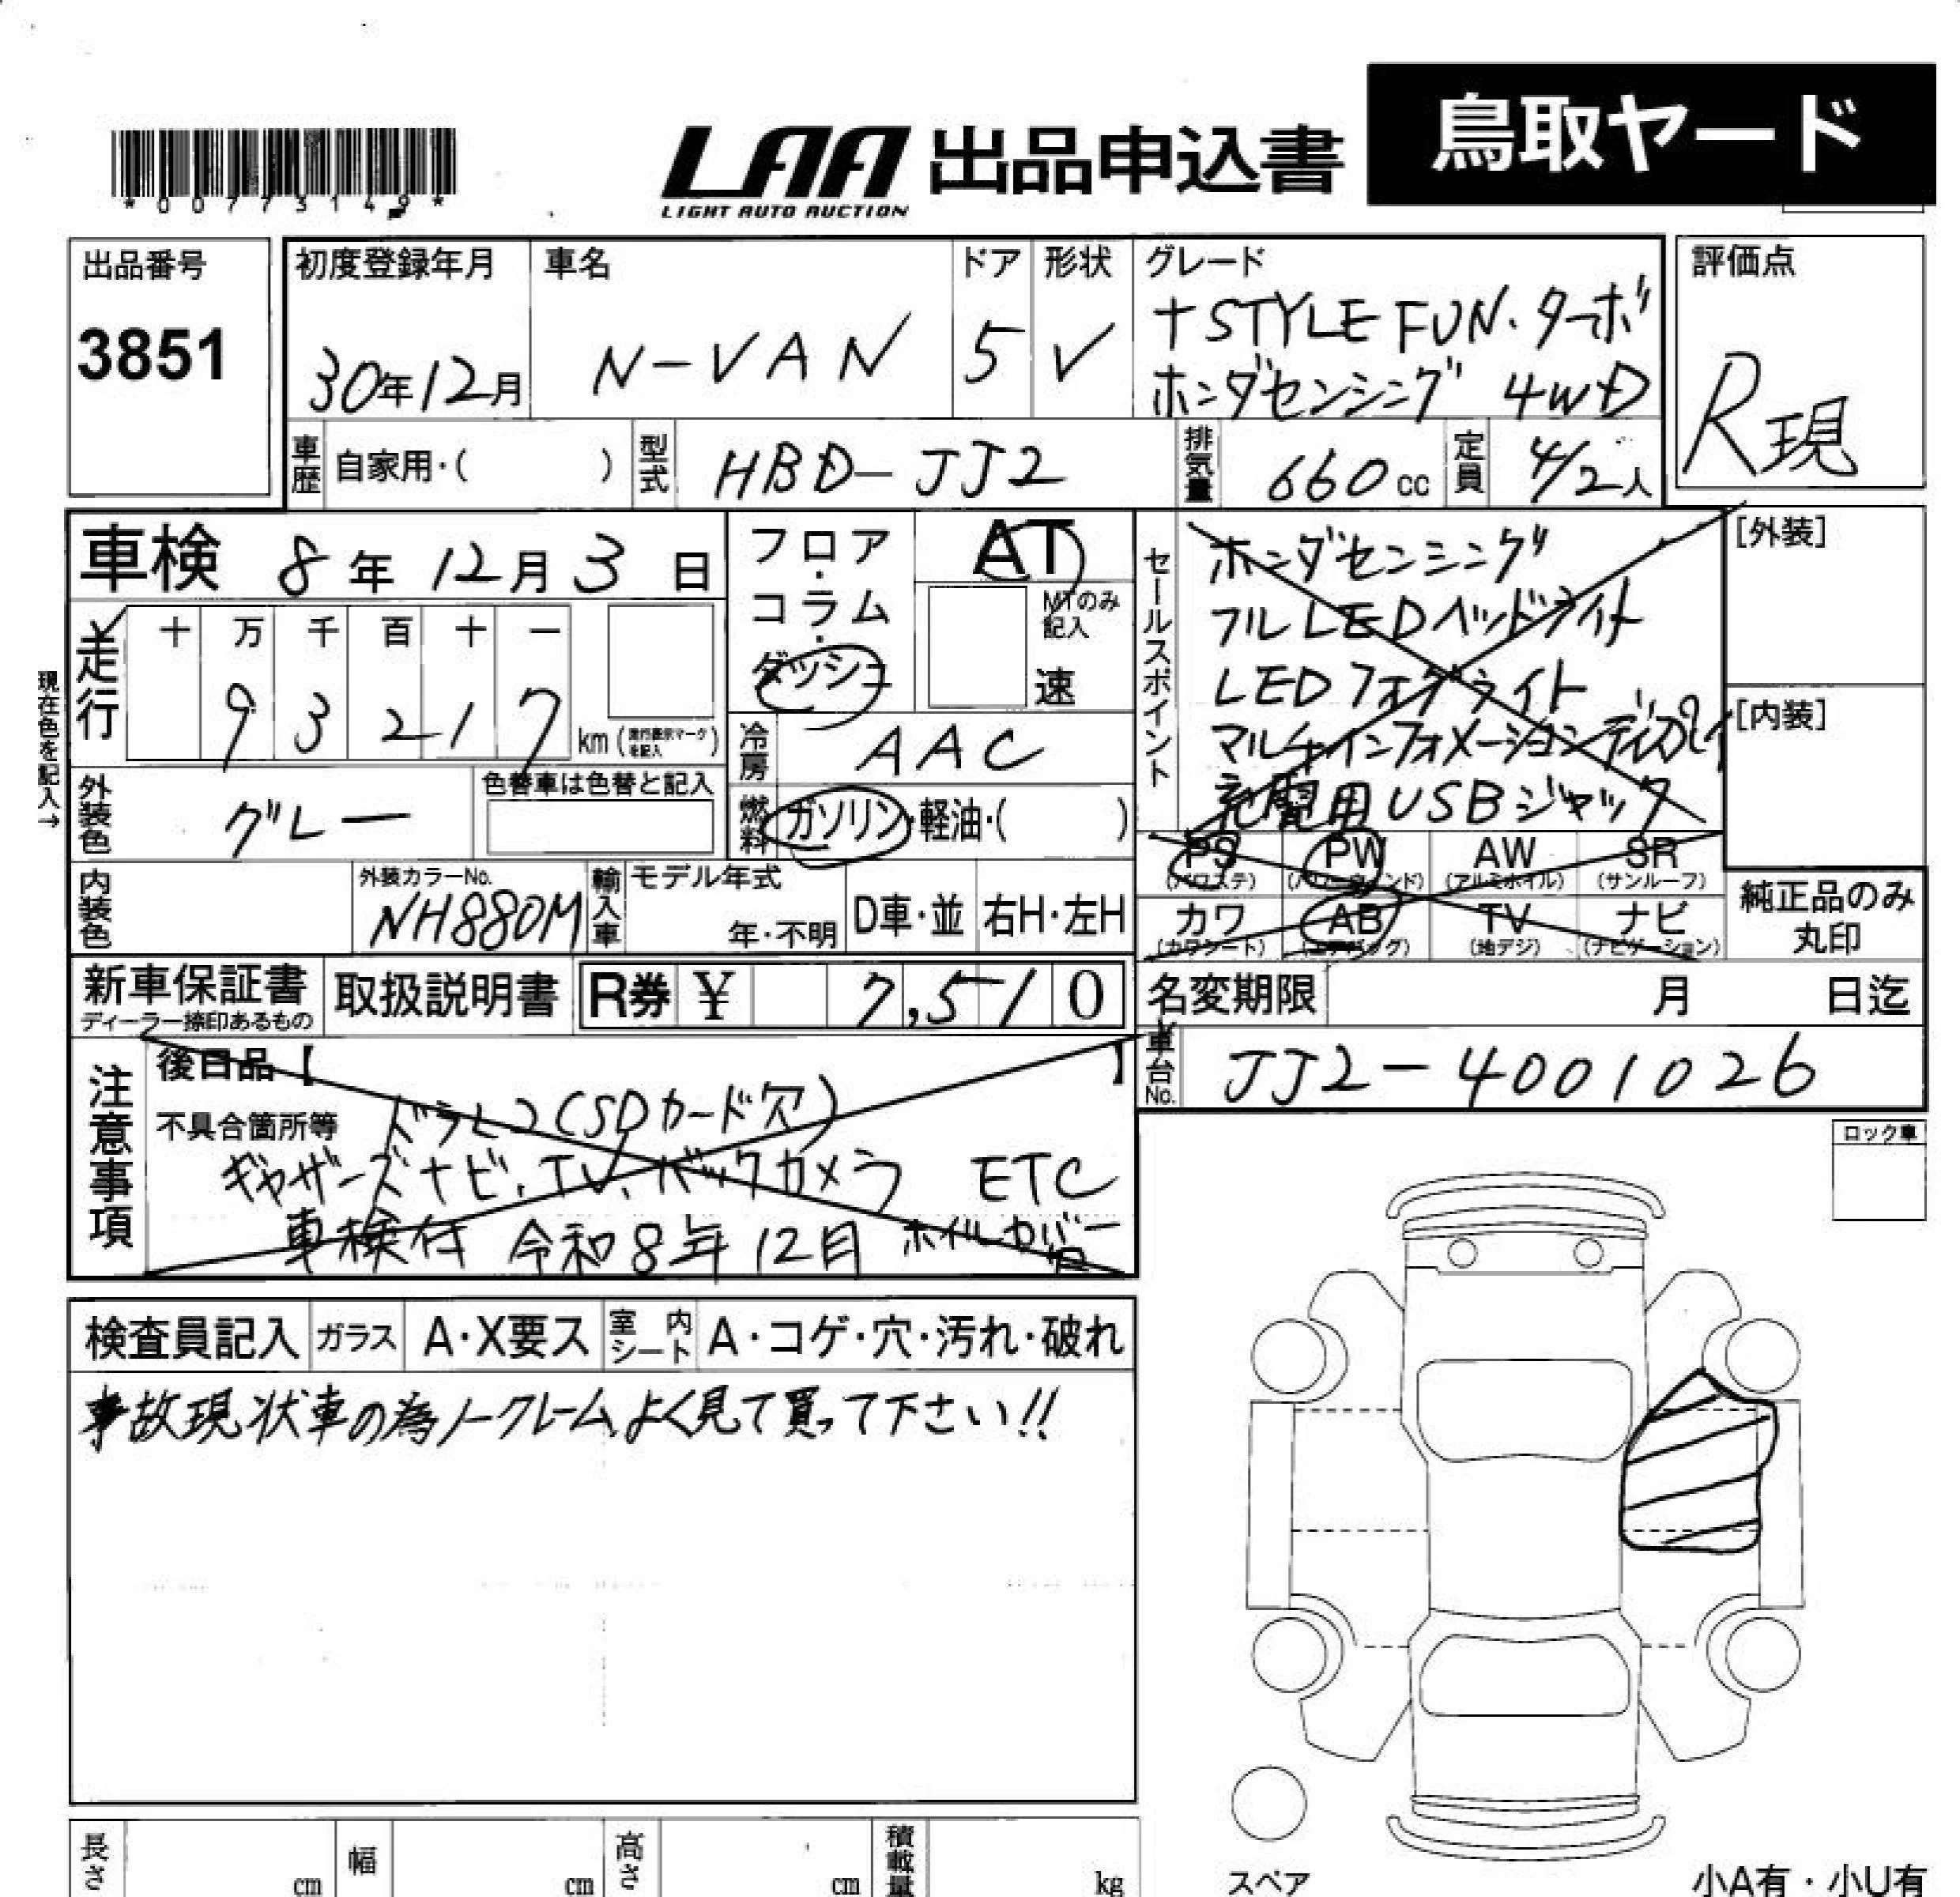 鳥取ヤード
LAA 出品申込書
LIGHT AUTO AUCTION
*00773149*
出品番号
3851
初度登録年月
30年12月
車名
N-VAN
ドア
5
形状
V
グレード
+STYLE FUN・ターボ
ホンダセンシング 4WD
評価点
R現
車歴 自家用・( )
型式 HBD-JJ2
排気量 660cc
定員 4/2人
車検 8年12月3日
フロア・コラム・ダッシュ
AT
MTのみ記入
速
セールスポイント
ホンダセンシング
フルLEDヘッドライト
LEDフォグライト
マルチインフォメーションディスプレイ
充電用USBジャック
[外装]
[内装]
現在色を記入→
走行
十 万 千 百 十 一
9 3 2 1 7
km (走行表示マークを記入)
冷房 AAC
外装色 グレー
色替車は色替と記入
燃料 ガソリン・軽油・( )
PS (パワステ) PW (パワーウィンド) AW (アルミホイル) SR (サンルーフ)
カワ (カワシート) AB (エアバッグ) TV (地デジ) ナビ (ナビゲーション)
純正品のみ
丸印
内装色
外装カラーNo.
NH880M
輸入車
モデル年式
年・不明
D車・並
右H・左H
新車保証書
ディーラー捺印あるもの
取扱説明書
R券 ¥ 7,510
名変期限 月 日迄
車台No. JJ2-4001026
注意事項
後日品【 】
不具合箇所等
ドラレコ(SDカード欠)
ギャザーズナビ、TV、バックカメラ ETC
車検付 令和8年12月 ホイルカバー
ロック車
検査員記入 ガラス A・X要ス 室内シート A・コゲ・穴・汚れ・破れ
事故現状車の為ノークレーム、よく見て買って下さい!!
長さ cm 幅 cm 高さ cm 積載量 kg
スペア
小A有・小U有